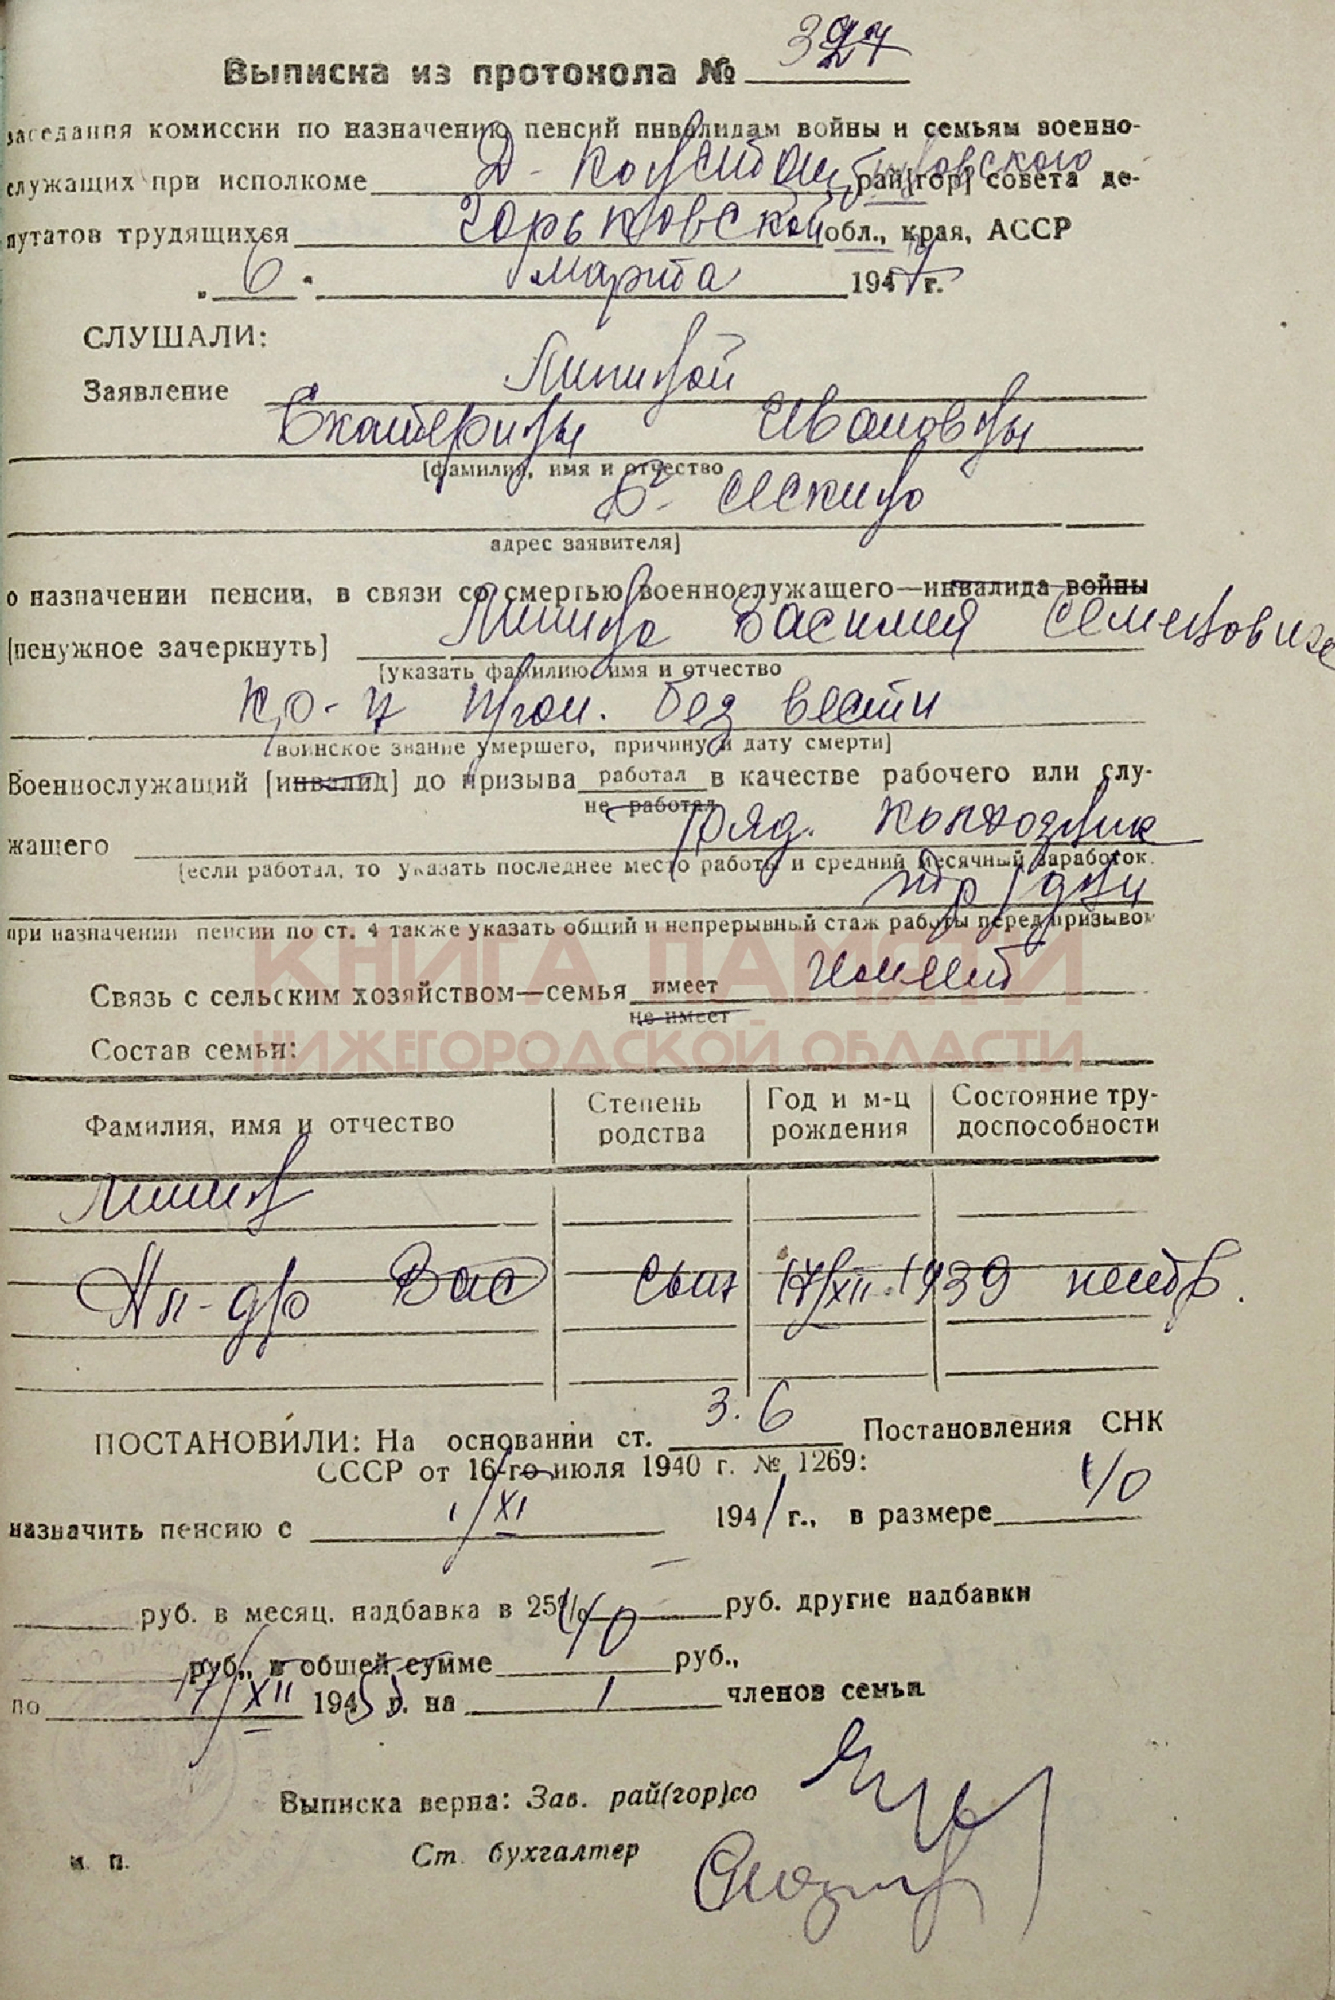 Выписка из протокола № 327
заседания комиссии по назначению пенсий инвалидам войны и семьям военно-
служащих при исполкоме Д-Константиновского рай[гор] совета де-
путатов трудящихся Горьковской обл., края, АССР
„ 6 “ марта 194 г.
СЛУШАЛИ:
Заявление
Екатерины Ивановны
[фамилия, имя и отчество
адрес заявителя]
о назначении пенсии, в связи со смертью военнослужащего—инвалида войны
[ненужное зачеркнуть] Василия Семеновича
[указать фамилию имя и отчество
кр-ц проп. без вести
[воинское звание умершего, причину и дату смерти]
Военнослужащий [инвалид] до призыва работал в качестве рабочего или слу-
не работал
жащего ряд. колхозник
[если работал, то указать последнее место работы и средний месячный заработок.
тр/дни
при назначении пенсии по ст. 4 также указать общий и непрерывный стаж работы перед призывом
КНИГА ПАМЯТИ
Связь с сельским хозяйством—семья имеет
не имеет
НИЖЕГОРОДСКОЙ ОБЛАСТИ
Состав семьи:
Фамилия, имя и отчество Степень родства Год и м-ц рождения Состояние тру-доспособности
Ал-др Вас сын 17/XII 1939 нетр.
ПОСТАНОВИЛИ: На основании ст. 3.6 Постановления СНК
СССР от 16-го июля 1940 г. № 1269:
назначить пенсию с 1/XI 1941 г., в размере 40
руб. в месяц, надбавка в 25% руб. другие надбавки
руб., в общей сумме 40 руб.,
по 17/XII 195 г. на 1 членов семьи
Выписка верна: Зав. рай(гор)со
м. п.
Ст. бухгалтер